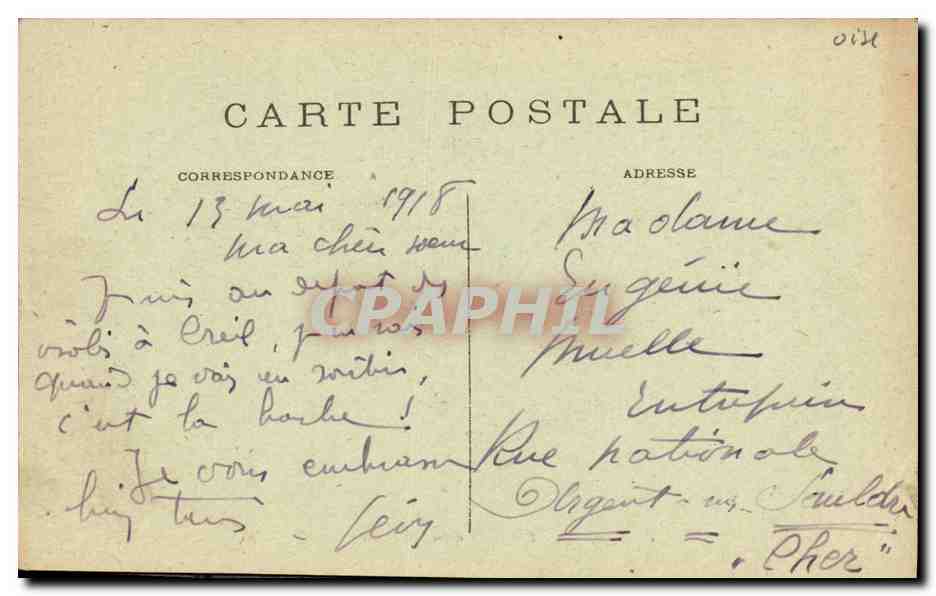 oise
CARTE POSTALE
CORRESPONDANCE
Le 13 mai 1918
ma chère soeur
suis au depot des
isolés à Creil, je ne sais
quand je vais en sortir,
c'est la boche !
Je vous embrasse
bien tous
ADRESSE
Madame
Eugénie
Muelle
Rue nationale
Argent sur Sauldre
"Cher"
CPAPHIL